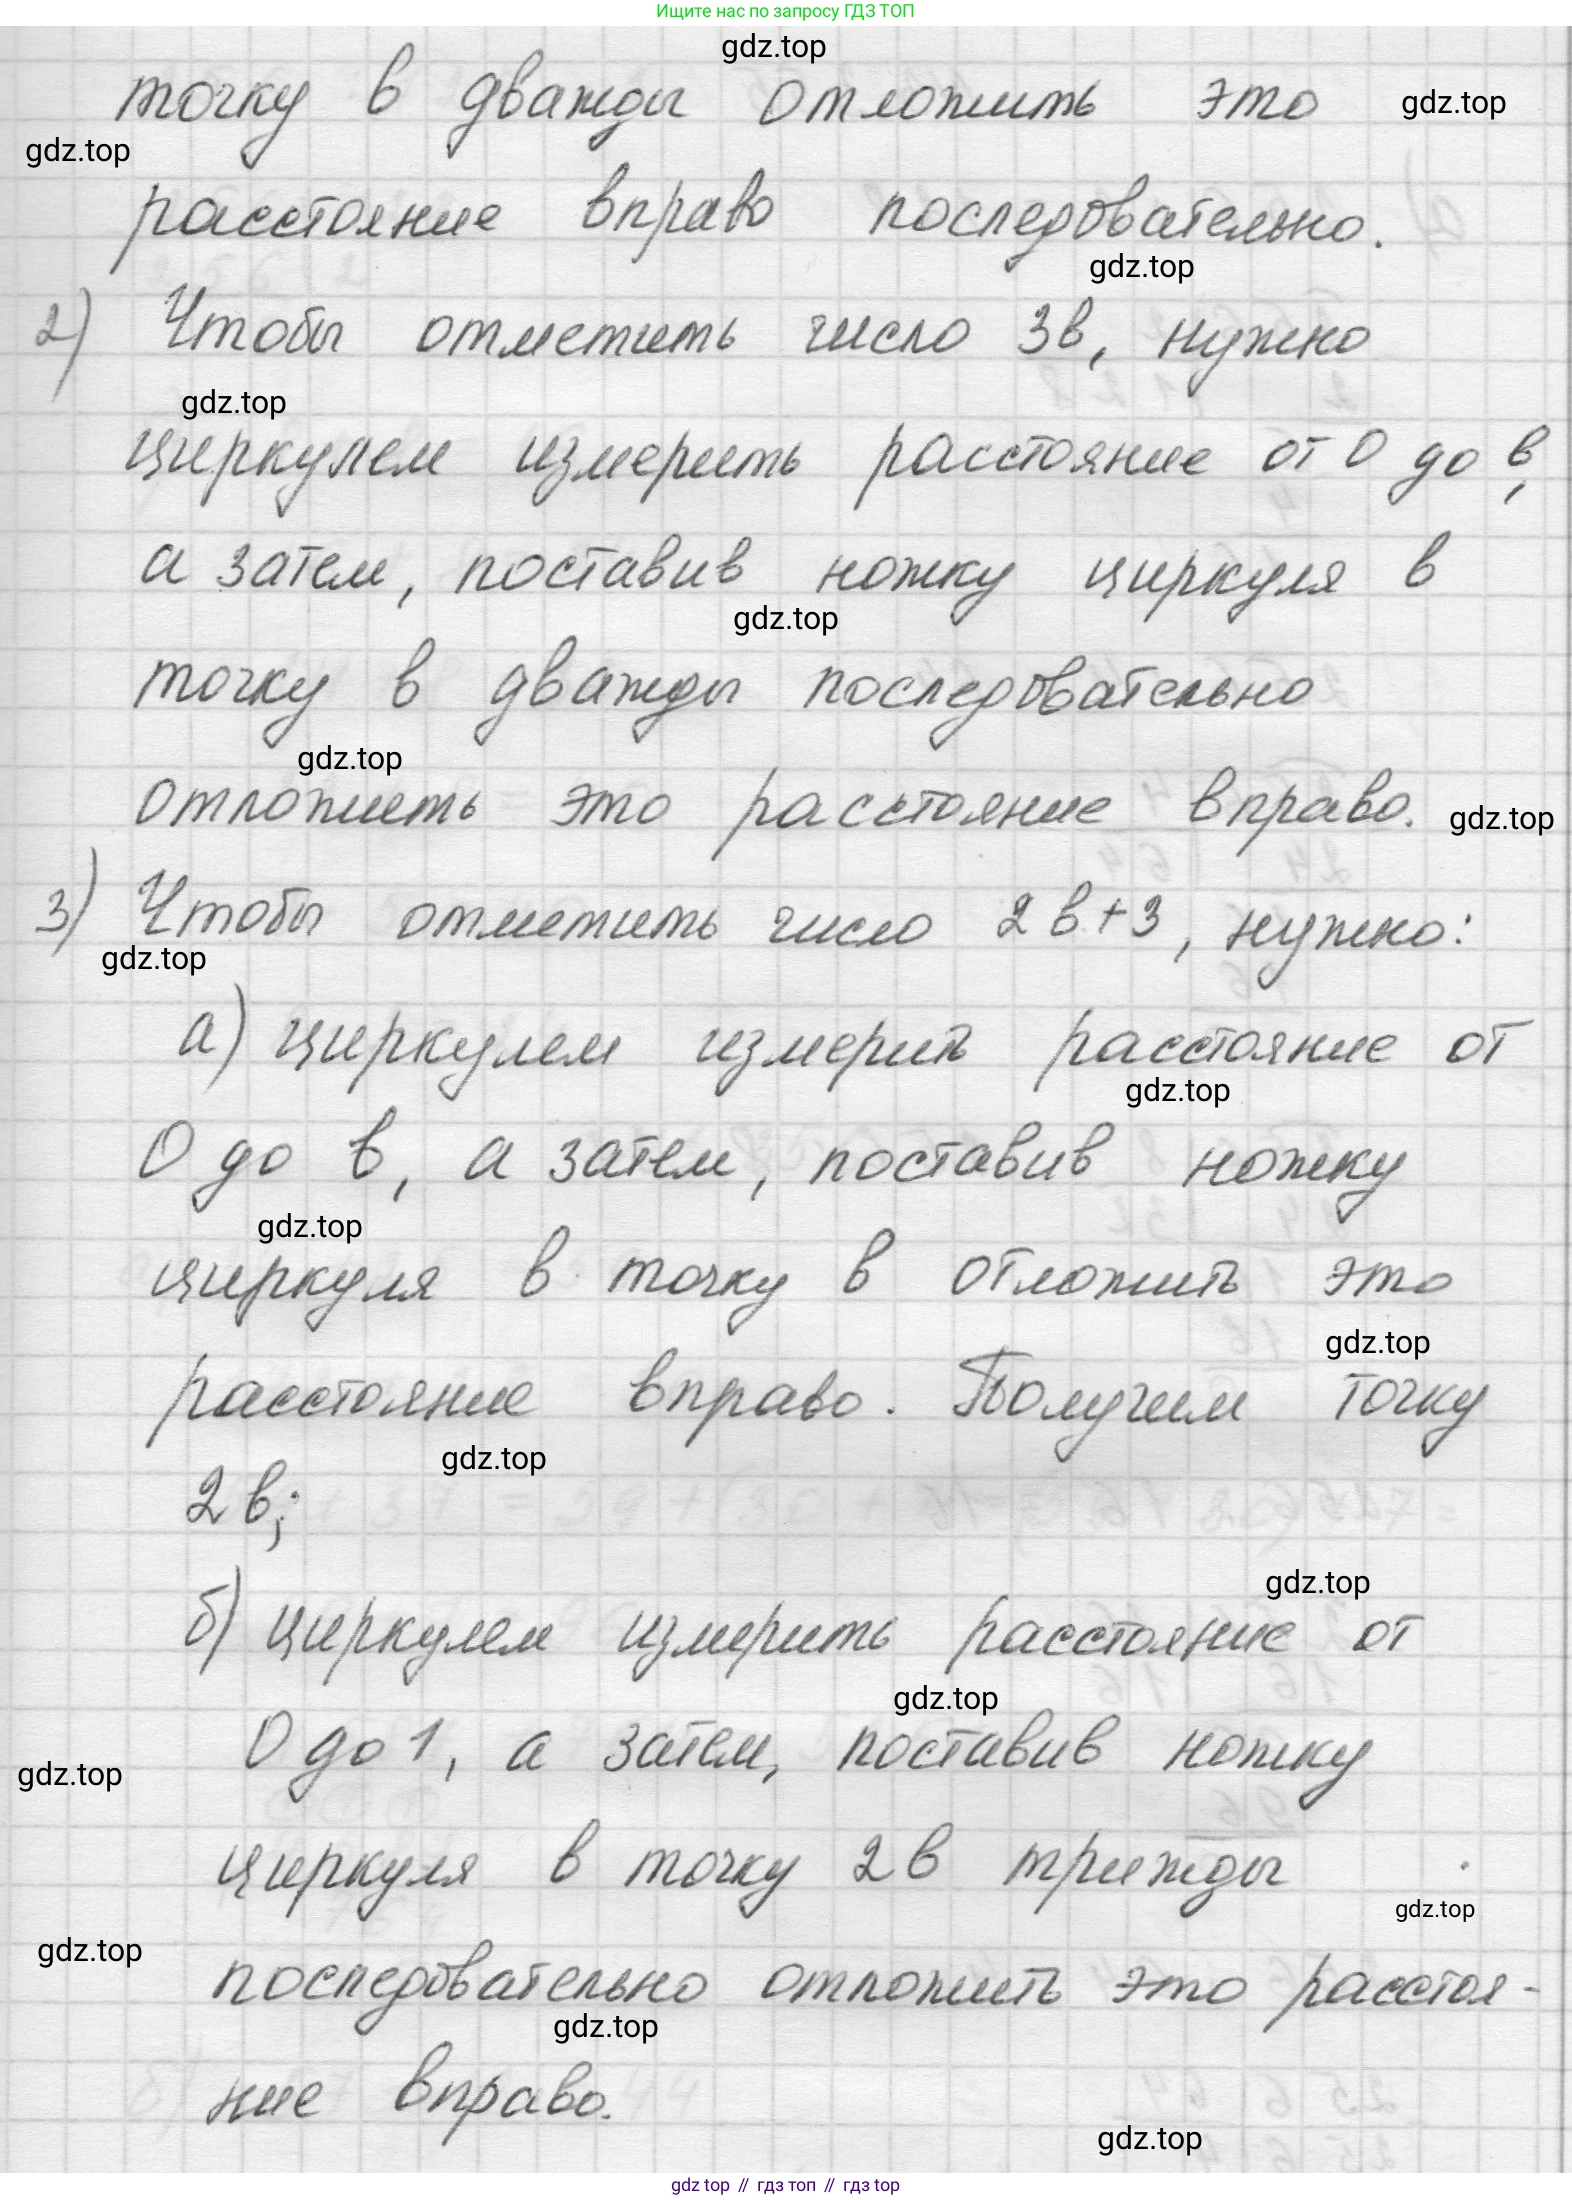 Ищите нас по запросу ГДЗ ТОП
gdz.top
точку в дважды отложить это
gdz.top
gdz.top
расстояние вправо последовательно.
gdz.top
2) Чтобы отметить число 3в, нужно
gdz.top
циркулем измерить расстояние от 0 до в,
а затем, поставив ножку циркуля в
gdz.top
точку в дважды последовательно
gdz.top
отложить это расстояние вправо.
gdz.top
3) Чтобы отметить число 2в+3, нужно:
gdz.top
а) циркулем измерить расстояние от
gdz.top
0 до в, а затем, поставив ножку
gdz.top
циркуля в точку в отложить это
gdz.top
расстояние вправо. Получим точку
gdz.top
2в;
gdz.top
б) циркулем измерить расстояние от
gdz.top
0 до 1, а затем, поставив ножку
gdz.top
циркуля в точку 2в трижды
gdz.top
gdz.top
последовательно отложить это расстоя-
gdz.top
ние вправо.
gdz.top
gdz top // гдз топ // гдз top